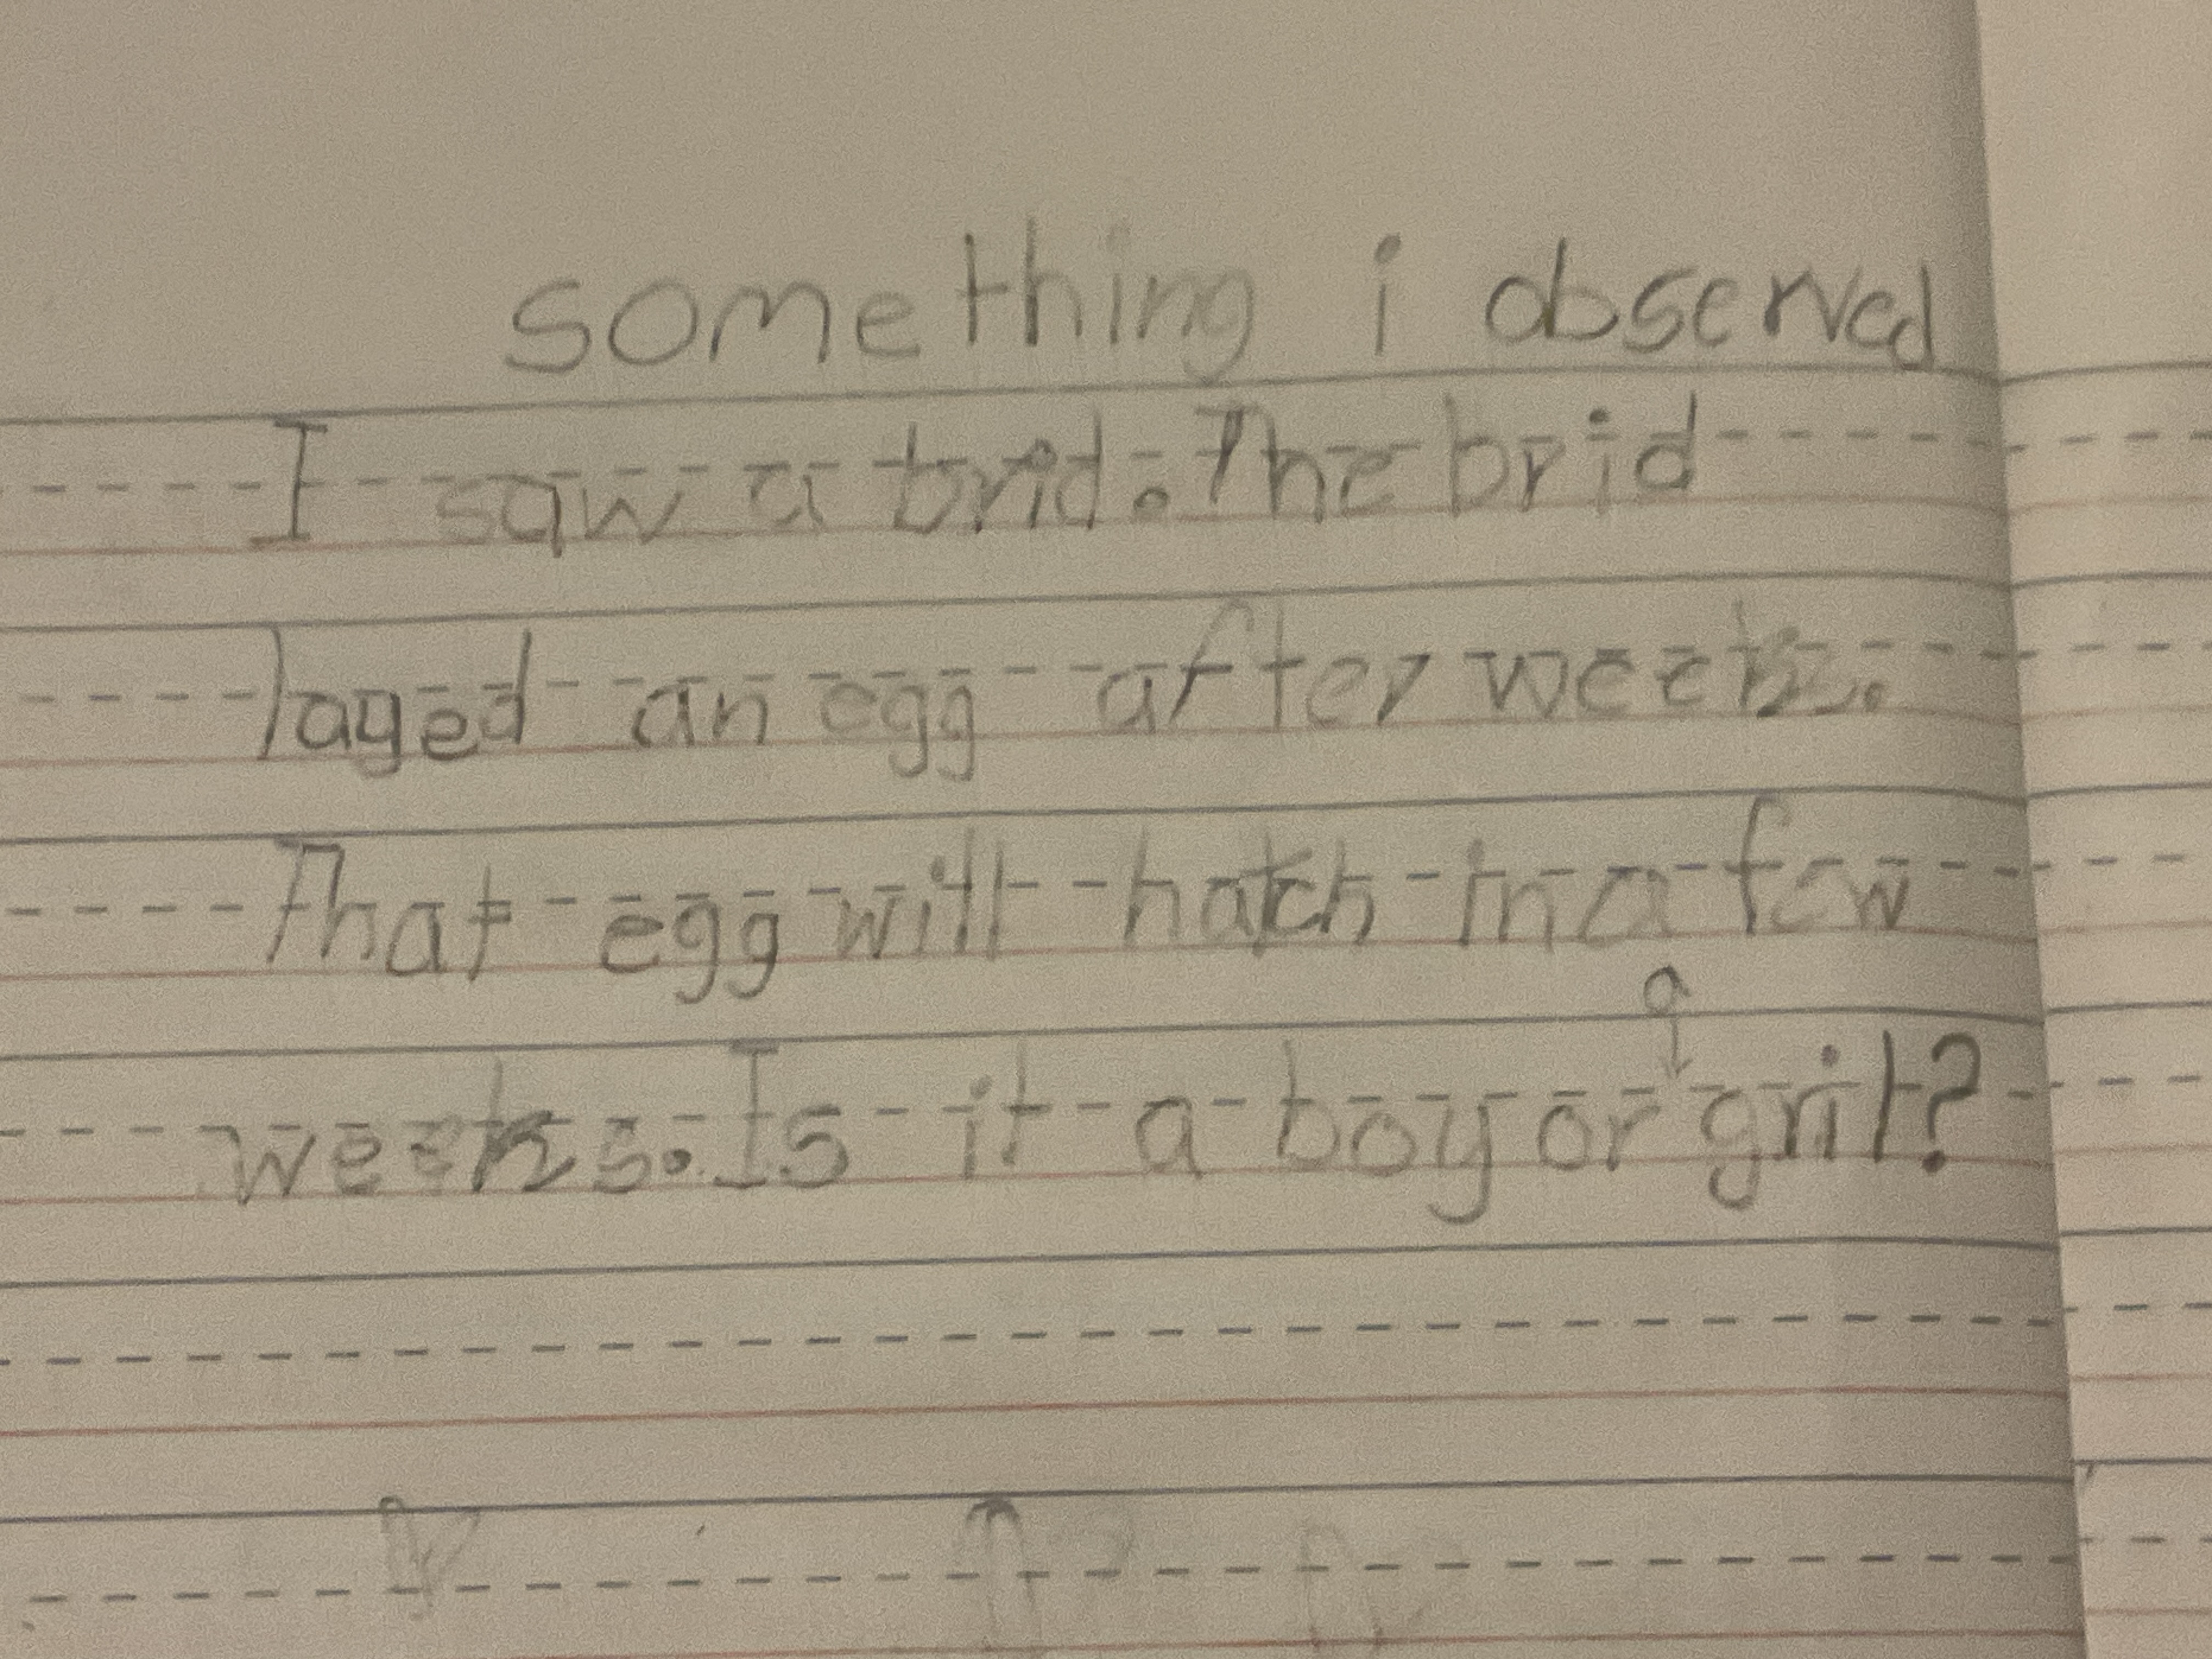 something i observed
I saw a brid. The brid
layed an egg after weeks.
That egg will hatch in a few
a
weeks. Is it a boy or gril?